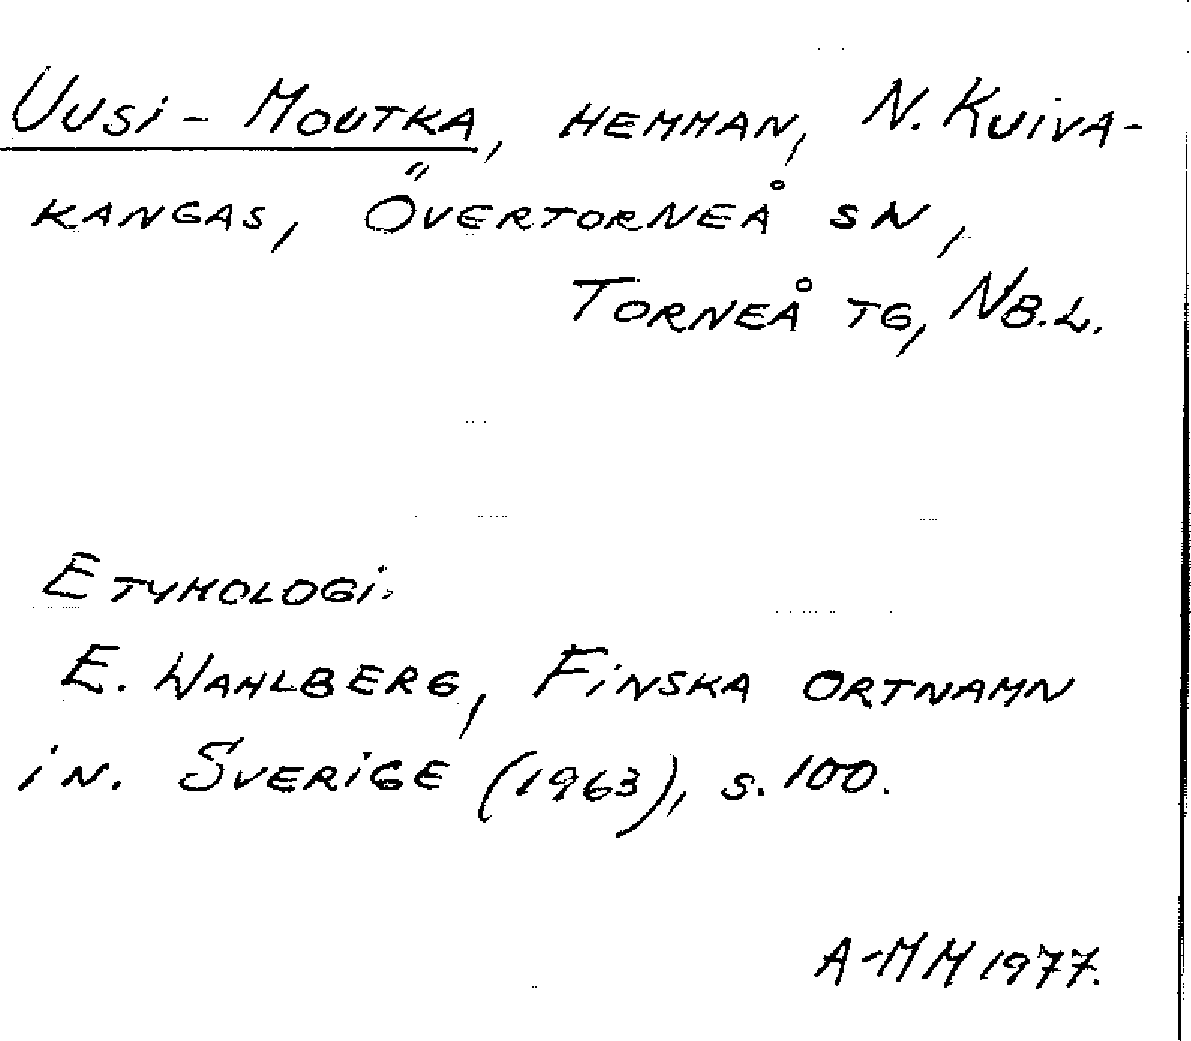 UUSI-MOUTKA, HEMMAN, N. KUIVA-
KANGAS, ÖVERTORNEÅ SN,
TORNEÅ TG, NB.L.
ETYMOLOGI:
E. WAHLBERG, FINSKA ORTNAMN
IN. SVERIGE (1963), S. 100.
A-MM 1977.